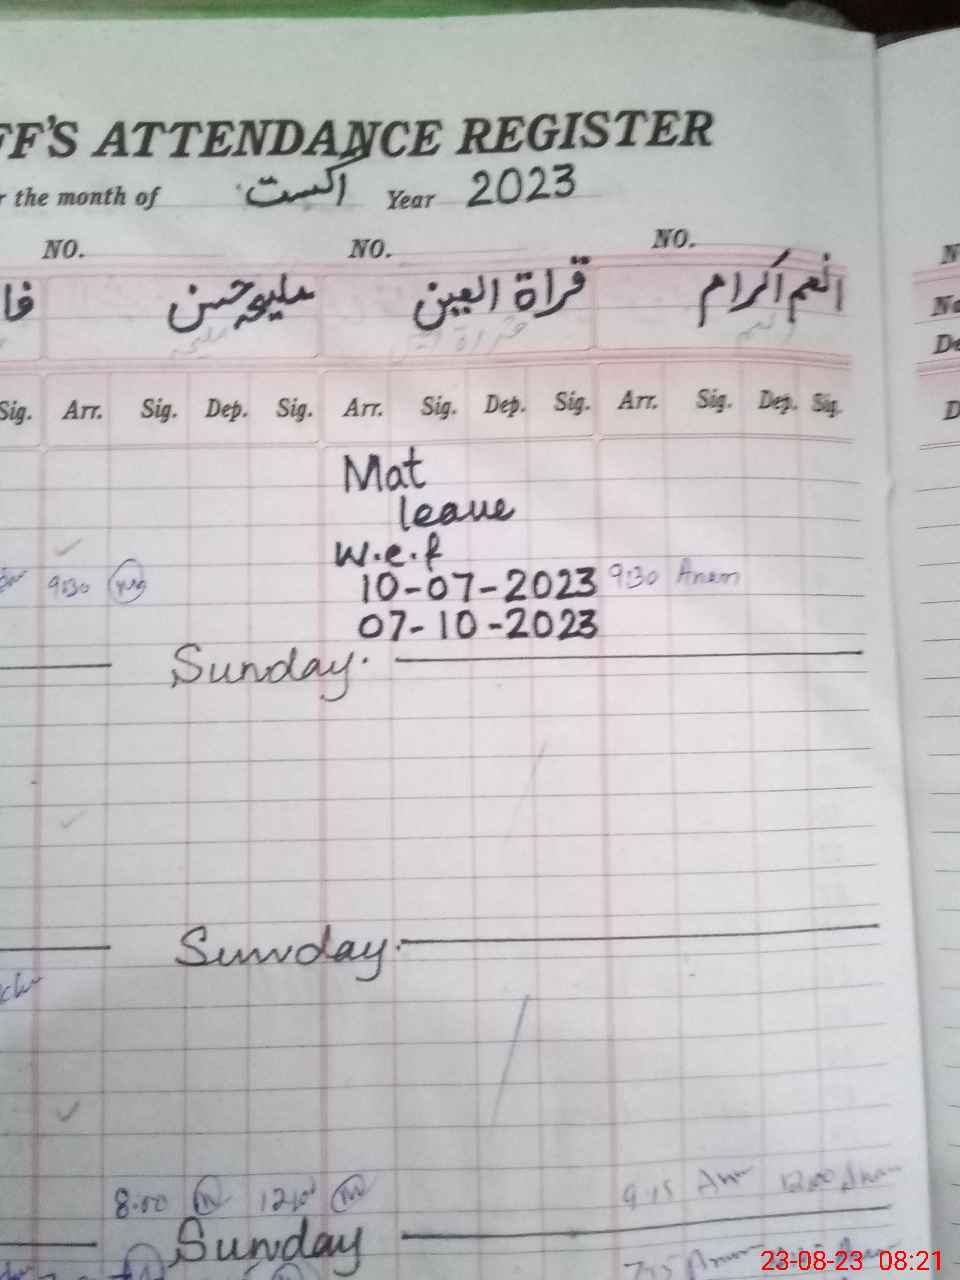 FF'S ATTENDANCE REGISTER
the month of اگست Year 2023
NO. NO. NO.
فا ملیحہ حسن قراة العین انعم اکرام
Sig. Arr. Sig. Dep. Sig. Arr. Sig. Dep. Sig. Arr. Sig. Dep. Sig.
Mat
leave
W.e.f
9:30 10-07-2023 9:30 Anam
07-10-2023
Sunday.
Sunday.
9:15 12:00
8:00
Sunday
23-08-23 08:21